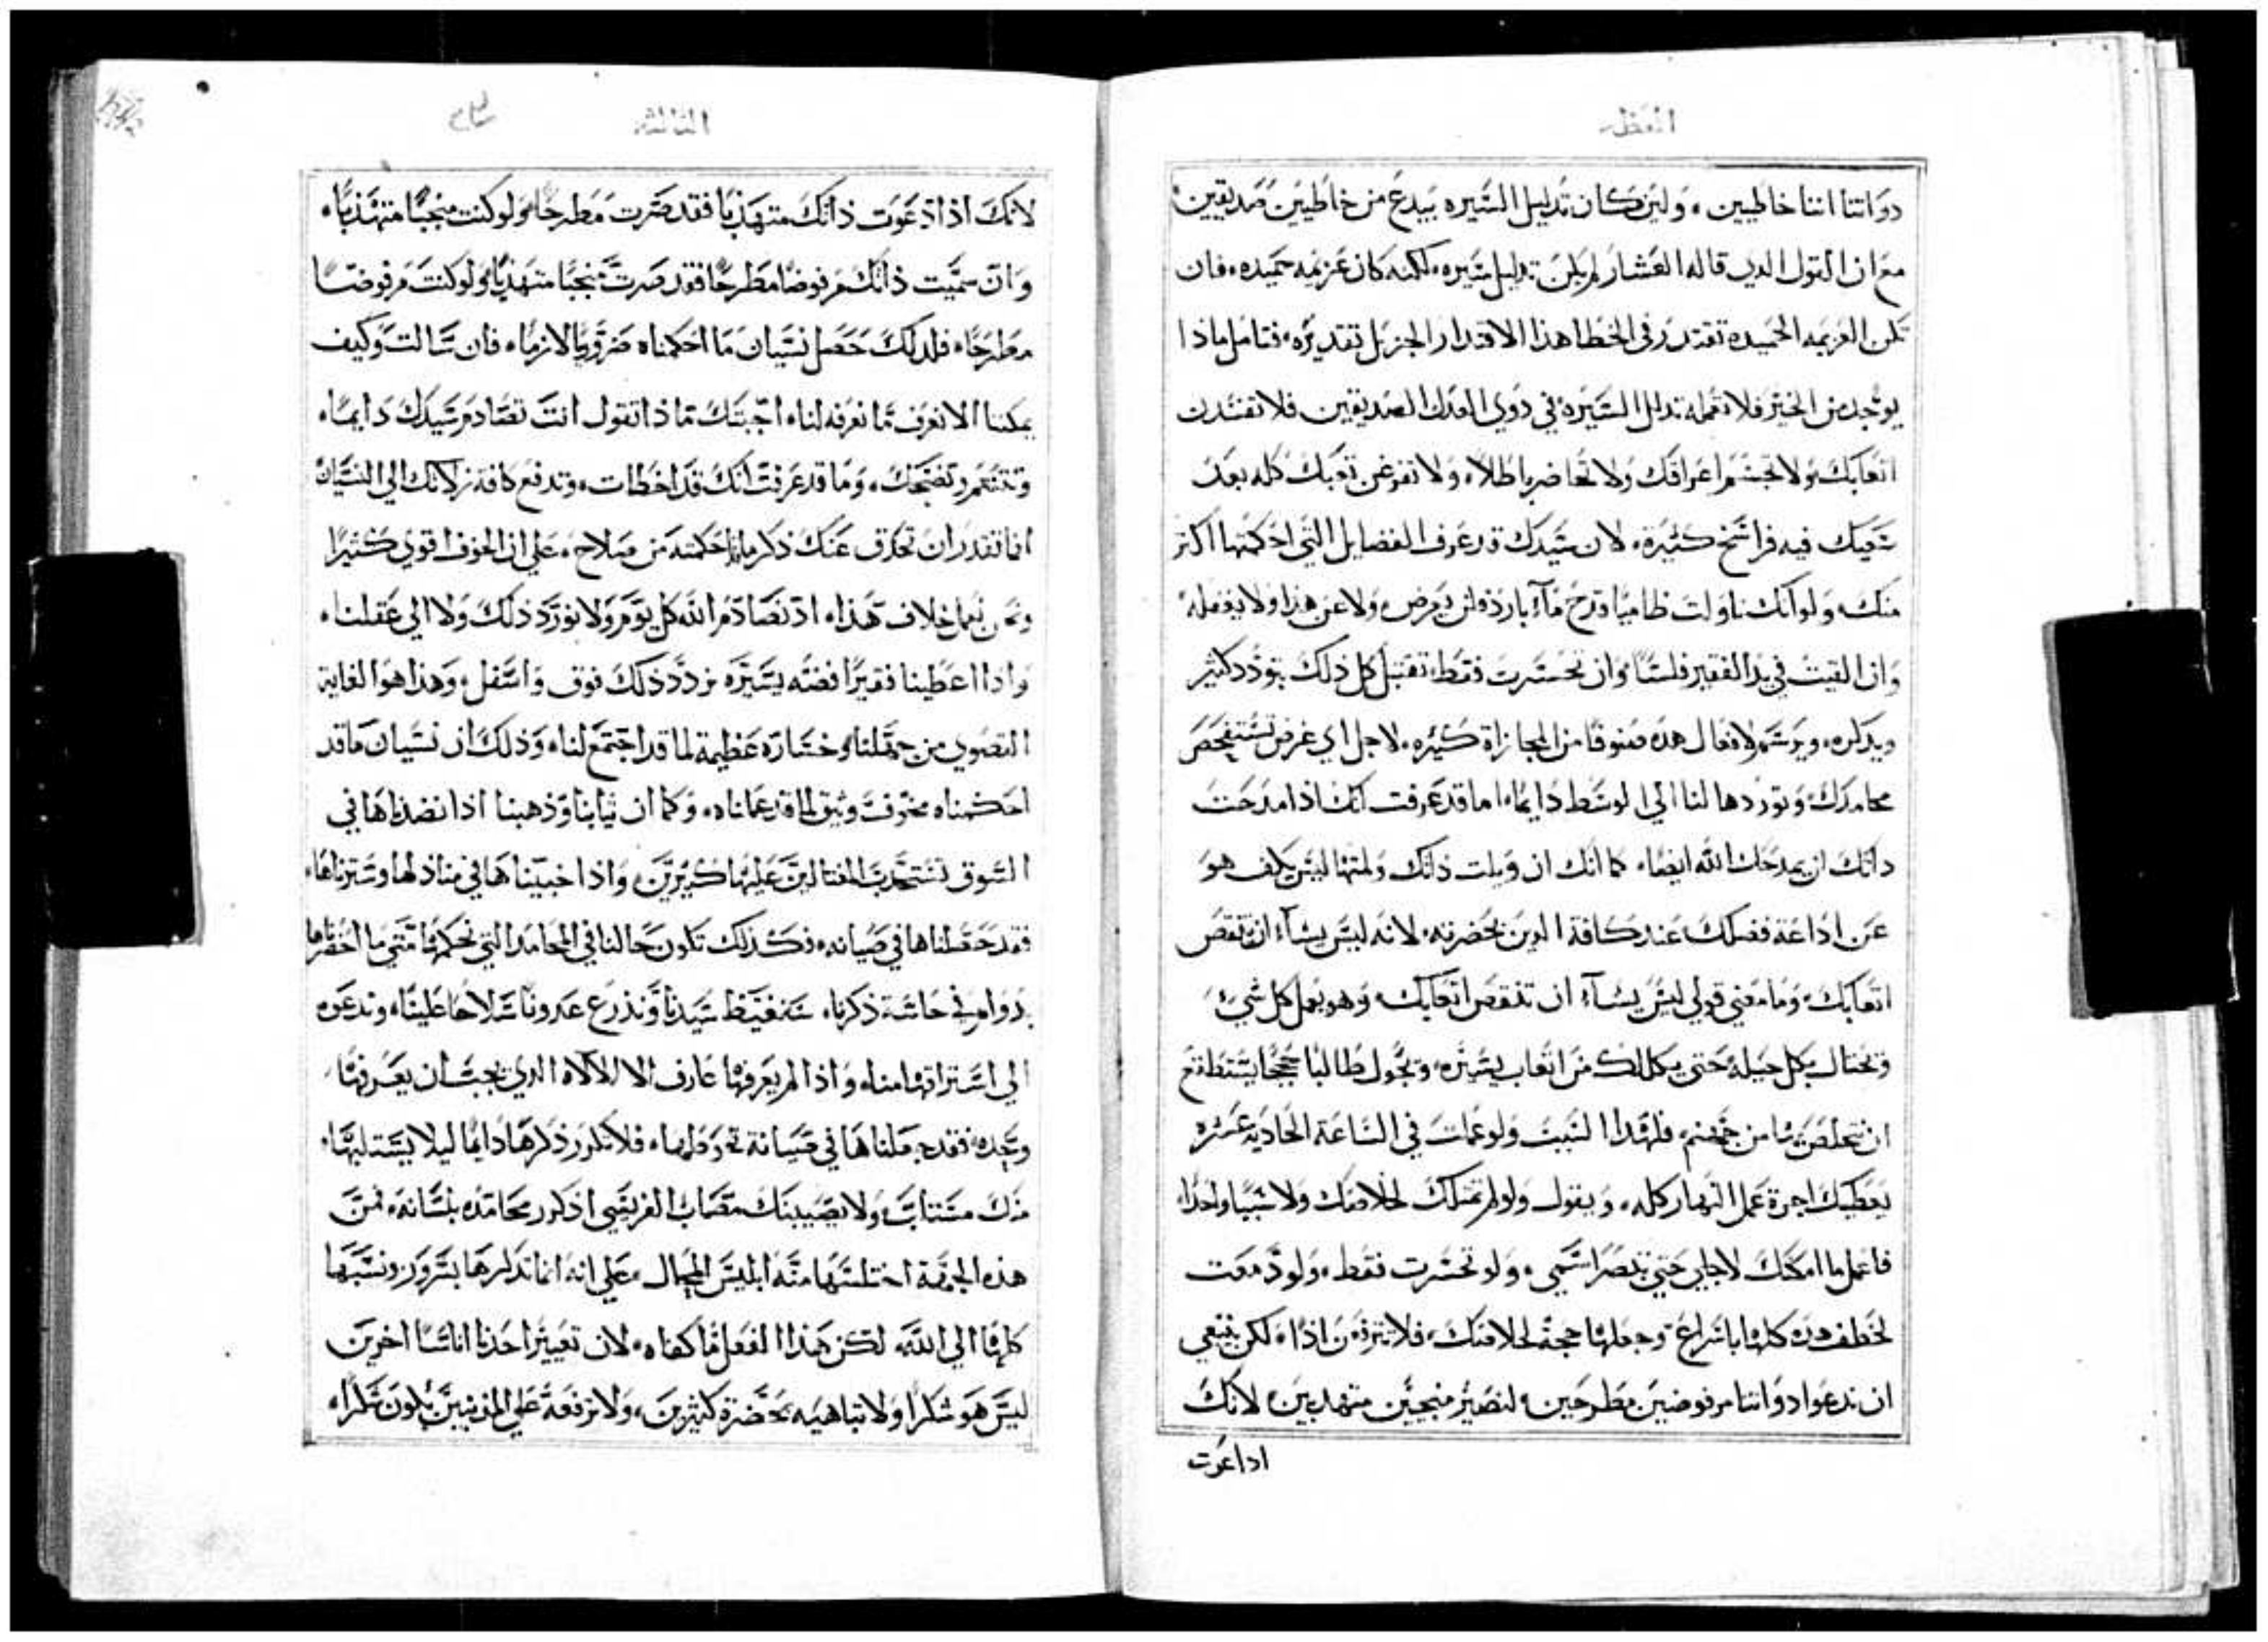 العظه
دواتنا اننا خاطيين، ولين كان تدليل السيره يبدع من خاطيين صديقين
مع ان القول الدي قاله العشار لم يكن تدليل سيره، لكنه كان عزيمه حميده، فان
تكن العزيمه الحميده تقتدر في الخطا هذا الاقتدار الجزيل تقديره، فتامل ماذا
يوجد من الخير فلا تعمله تدلل السيره في دوي العدل الصديقين فلا تفسدن
اتعابك ولا تجشم اعراقك ولا تحاضر باطلا، ولا تفرغن تعبك كله بعد
سعيك فيه فراسخ كثيرة، لان سيدك قد عرف الفضايل التي احكمتها اكثر
منك، ولو انك ناولت ظاميا قدح مآء بارد فلن يعرض ولا عن هذا ولا يغفله
وان القيت في يد الفقير فلسا، وان تحسرت فقط، تقتبل كل ذلك بتودد كثير
ويدكره، ويرسم لافعال هده صنوفا من المجازاة كثيره، لاجل اي غرض تستفحص
محامدك وتوردها لنا الي الوسط دايما، اما قد عرفت انك اذا مدحت
داتك لن يمدحك الله ايضا، كما انك ان ويلت ذاتك ولمتها ليس يكف هو
عن اداعة فضلك عند كافة الدين بحضرته، لانه ليس يشآء ان تنقص
اتعابك، وما معني قولي ليس يشآء ان تنقص اتعابك، وهو يعمل كل شي
وتحتال بكل حيله حتي يكللك من اتعاب يسيره، ويجول طالبا حججا يستطيع
ان تتخلص بها من جهنم، فلهدا السبب ولو عملت في الساعة الحادية عشره
يعطيك اجرة عمل النهار كله، ويقول ولو لم تمتلك لخلاصك ولا سببا واحدا،
فاعمل ما امكنك لاجلي حتي تنصر اسمي، ولو تحسرت فقط، ولو دمعت
لخطف هده كلها باسراع وجعلها حجة لخلاصك، فلا نترفعن اذا، لكن ينبغي
ان ندعوا دواتنا مرفوضين مطرحين، لنصير منجحين متهدبين، لانك
اداعوت
الثالثه
لانك اذا ادعوت ذاتك متهذبا فقد صرت مطرحا، ولو كنت منجحا متهذبا،
وان سميت ذاتك مرفوضا مطرحا فقد صرت منجحا متهذبا، ولو كنت مرفوضا
مطرحا، فلدلك حصل نسيان ما احكمناه ضروريا لازما، فان سالت وكيف
يمكننا الا نعرف ما نعرفه لنا، اجبتك ماذا تقول انت تصادم سيدك دايما،
وتتنعم وتضحك، وما قد عرفت انك قد اخطات، وتدفع كافة زلاتك الي النسيان
افما تقتدر ان تحرق عنك ذكر ما احكمته من صلاح، علي ان الخوف اقوي كثيرا
ونحن نعمل خلاف هذا، اذ نصادم الله كل يوم ولا نورد ذلك ولا الي عقلنا،
واذا اعطينا فقيرا فضه يسيره نردد ذلك فوق واسفل، وهذا هو الغاية
القصوي من جهلنا، وخسارة عظيمة لما قد اجتمع لنا، وذلك ان نسيان ما قد
احكمناه مخوف وثيق لما قد عملناه، وكما ان ثيابنا وذهبنا اذا نضدناها في
السوق نستجذب المغتالين عليها كثيرين، واذا اخبيناها في منازلها وسترناها،
فقد حفظناها في صيانه، فكذلك تكون حالنا في المحامد التي نحكمها متي ما احضرناها
بدوام في حاسة ذكرنا، سنغيظ سيدنا ونذرع عدونا سلاحا علينا، وندعوه
الي استراقها منا، واذا لم يعرفها عارف الا الالاه الدي يجب ان يعرفها
وحده، فقد جعلناها في صيانة تحوطها، فلا تكرر ذكرها دايما ليلا يستلبها
منك مستلب، ولا يصيبنك مصاب الفريسي اذ كرر محامده بلسانه، فمن
هذه الجهة اختلسها منه ابليس المحال، علي انه انما تدكرها بسرور ونسبها
كلها الي الله، لكن هذا الفعل ما كفاه، لان تعيير احدنا اناسا اخرين
ليس هو شكرا، ولا تباهيه بحضرة كثيرين، ولا ترفعه علي المذنبين يكون شكرا،